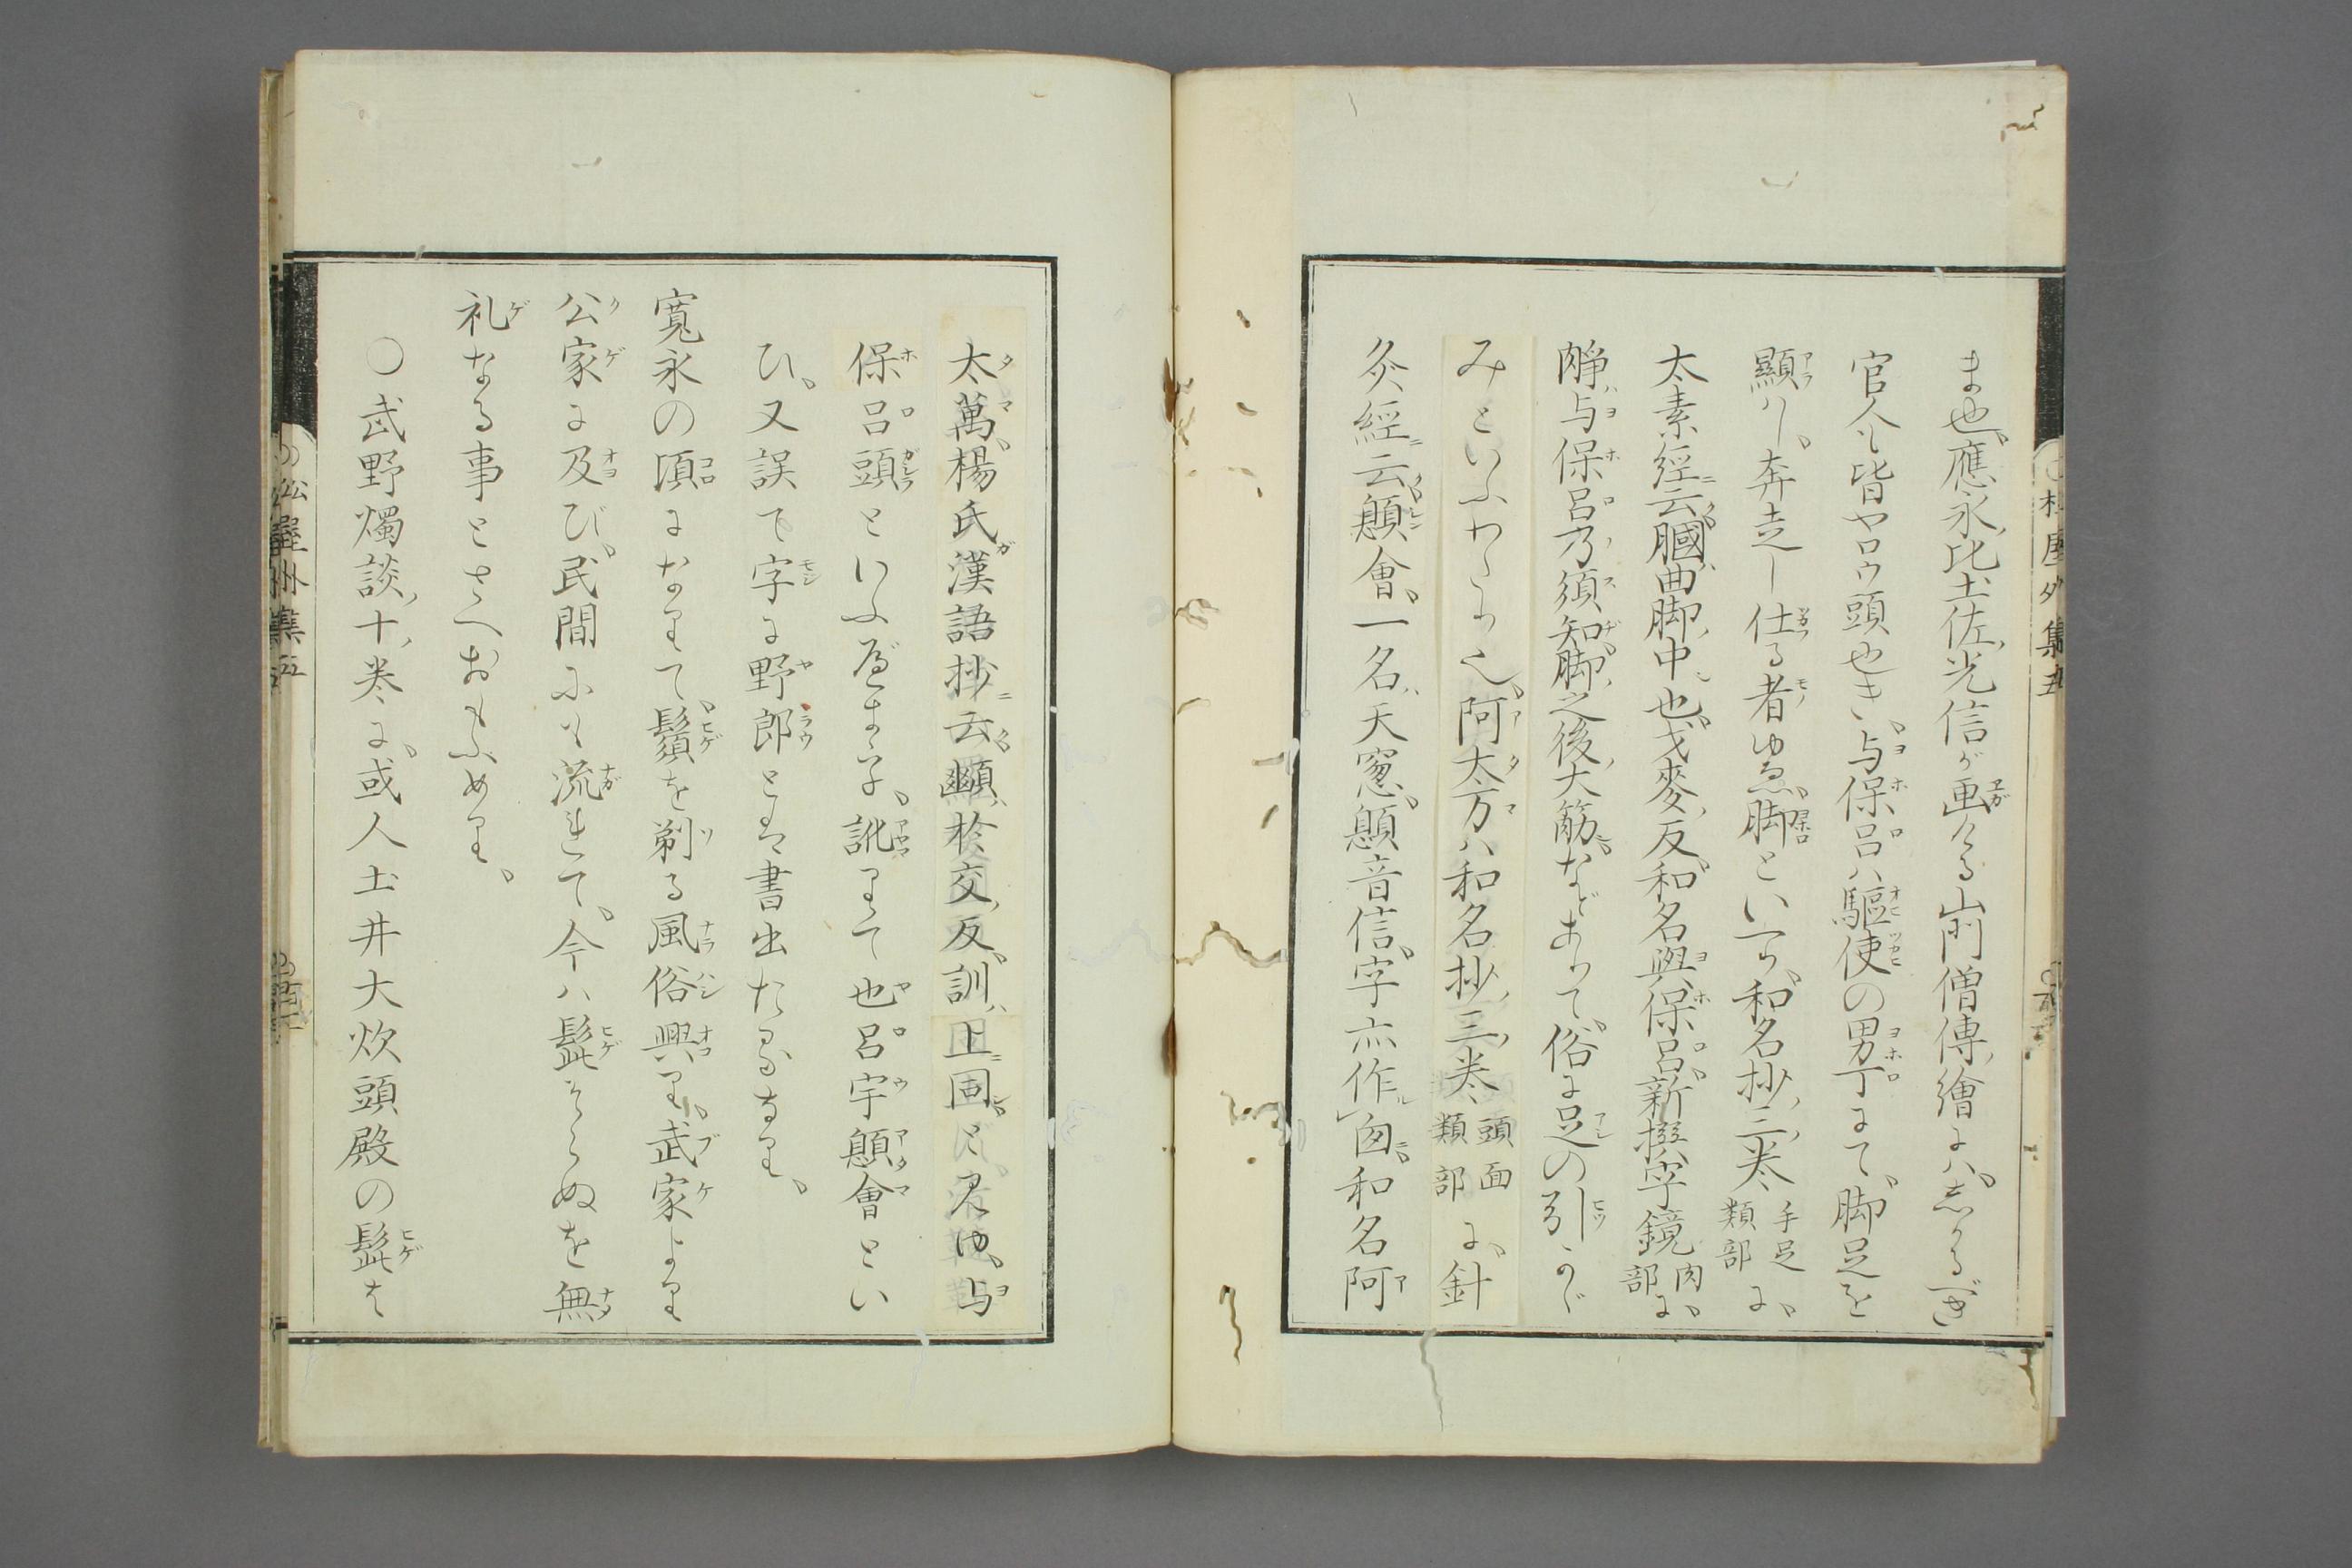 ま也應永比土佐光信が画ける山門僧傳繪にハ志かるべき
官人も皆ヤロウ頭也き与保呂ハ驅使の男丁にて脚足を
顯ハし奔走し仕る者ゆゑ脚といへり和名抄二巻手足類部に
太素經云膕曲脚中也戈麥反和名與保呂新撰字鏡肉部に
与保呂乃須知脚之後大筋などありて俗に足の引かゞ
みといふわたり也阿太万ハ和名抄三巻頭面類部に針
灸經云顖會一名天窓顖音信字亦作囟和名阿
太萬楊氏漢語抄云䫜於交反訓上固と見ゆ与
保呂頭といふべきを訛りて也呂宇顖會とい
ひ又誤て字に野郎とは書出たるなり
寛永の頃になりて鬚を剃る風俗興り武家より
公家に及び民間にも流れて今ハ髭そらぬを無
礼なる事とさへおもふめり
〇武野燭談十巻に或人土井大炊頭殿の髭を
松屋外集五